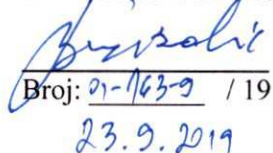 Broj: 01-163-9 / 19
23.9.2019